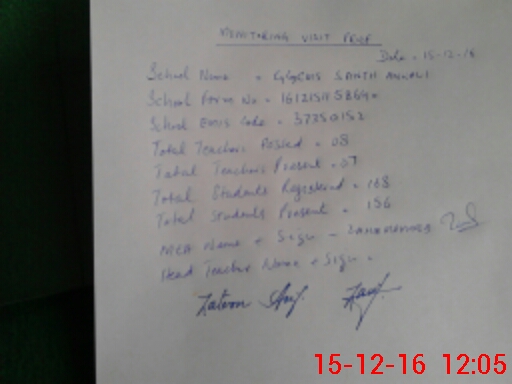 MONITORING VISIT PROOF
Date = 15-12-16
School Name = GGCMS
School Form No =
School EMIS Code = 37250152
Total Teachers Posted = 08
Total Teachers Present = 07
Total Students Registered = 168
Total Students Present = 156
MEA Name & Sign -
Head Teacher Name & Sign =
15-12-16 12:05